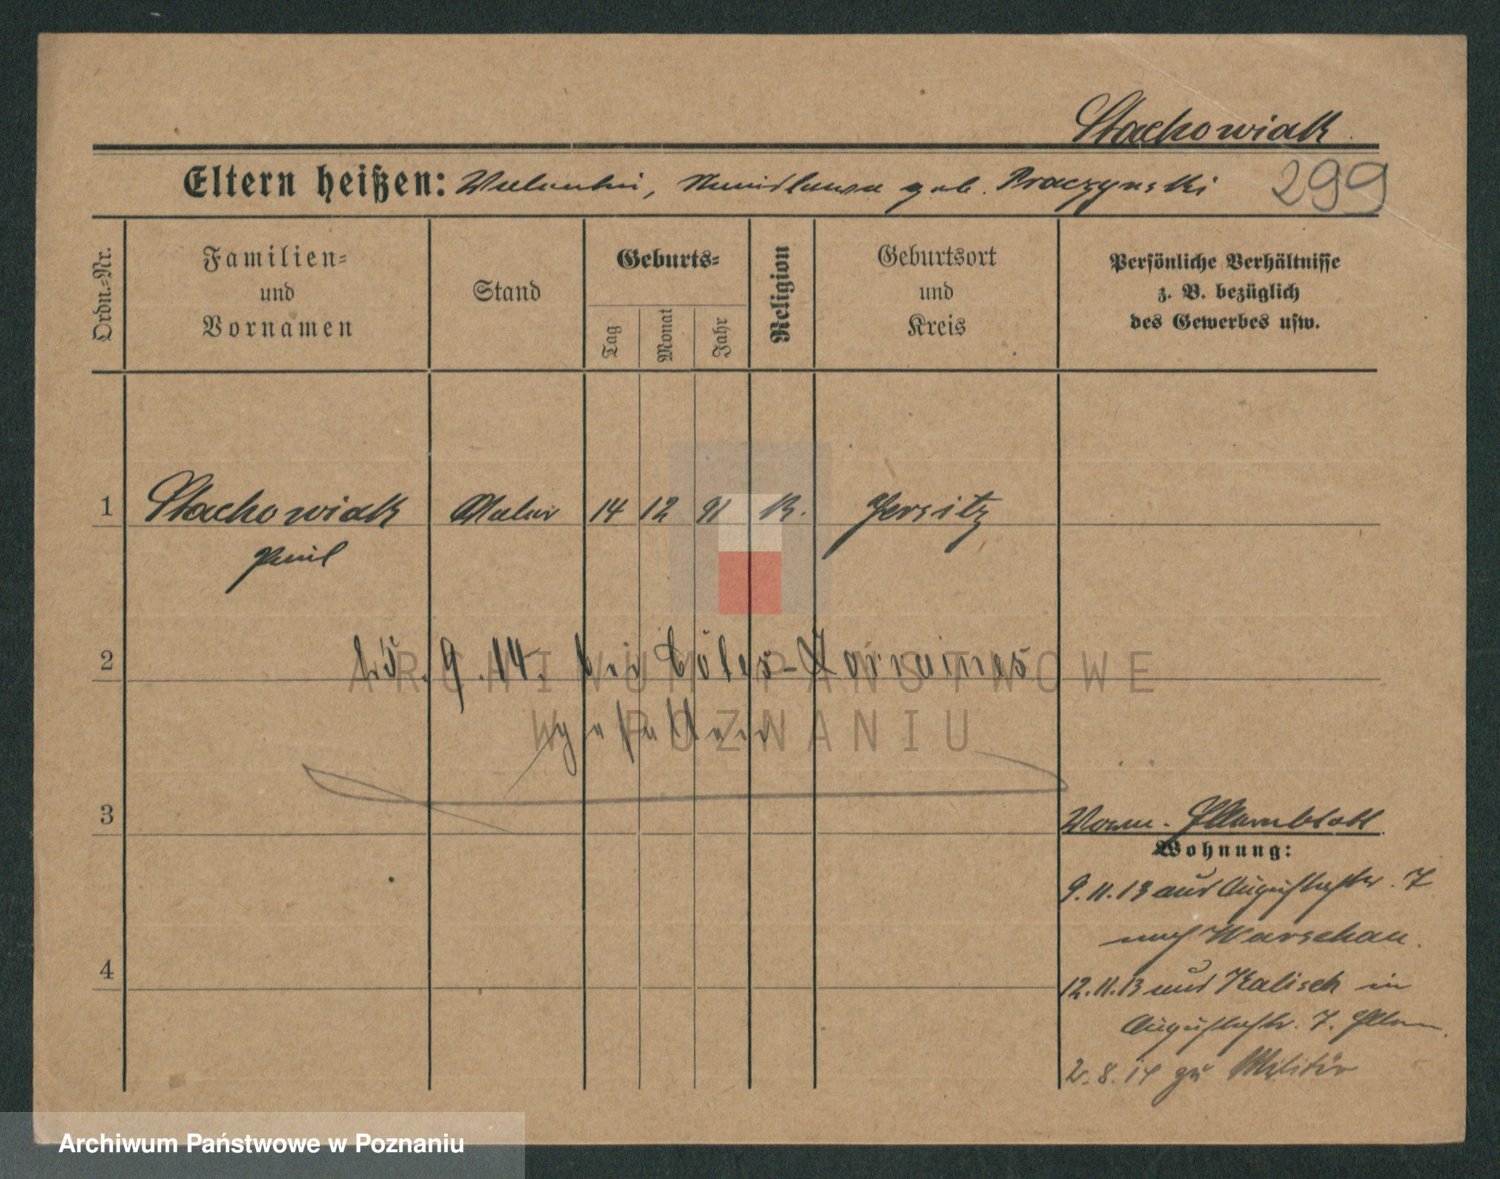 Stachowiak
Eltern heißen: Valentin, Stanislawa geb. Praczynski
299
Ordn.-Nr.
Familien-
und
Vornamen
Stand
Geburts-
Tag
Monat
Jahr
Religion
Geburtsort
und
Kreis
Persönliche Verhältnisse
z. B. bezüglich
des Gewerbes usw.
1 Stachowiak Maler 14 12 91 K. Jersitz
Paul
2 25. 9. 14. bei
gefallen
3
4
Elternblatt
Wohnung:
9.11.13 aus Augustastr. 7
nach Warschau.
12.11.13 aus Kalisch in
Augustastr. 7. Eltern.
2.8.14 zu Militär
ARCHIWUM PAŃSTWOWE
W POZNANIU
Archiwum Państwowe w Poznaniu